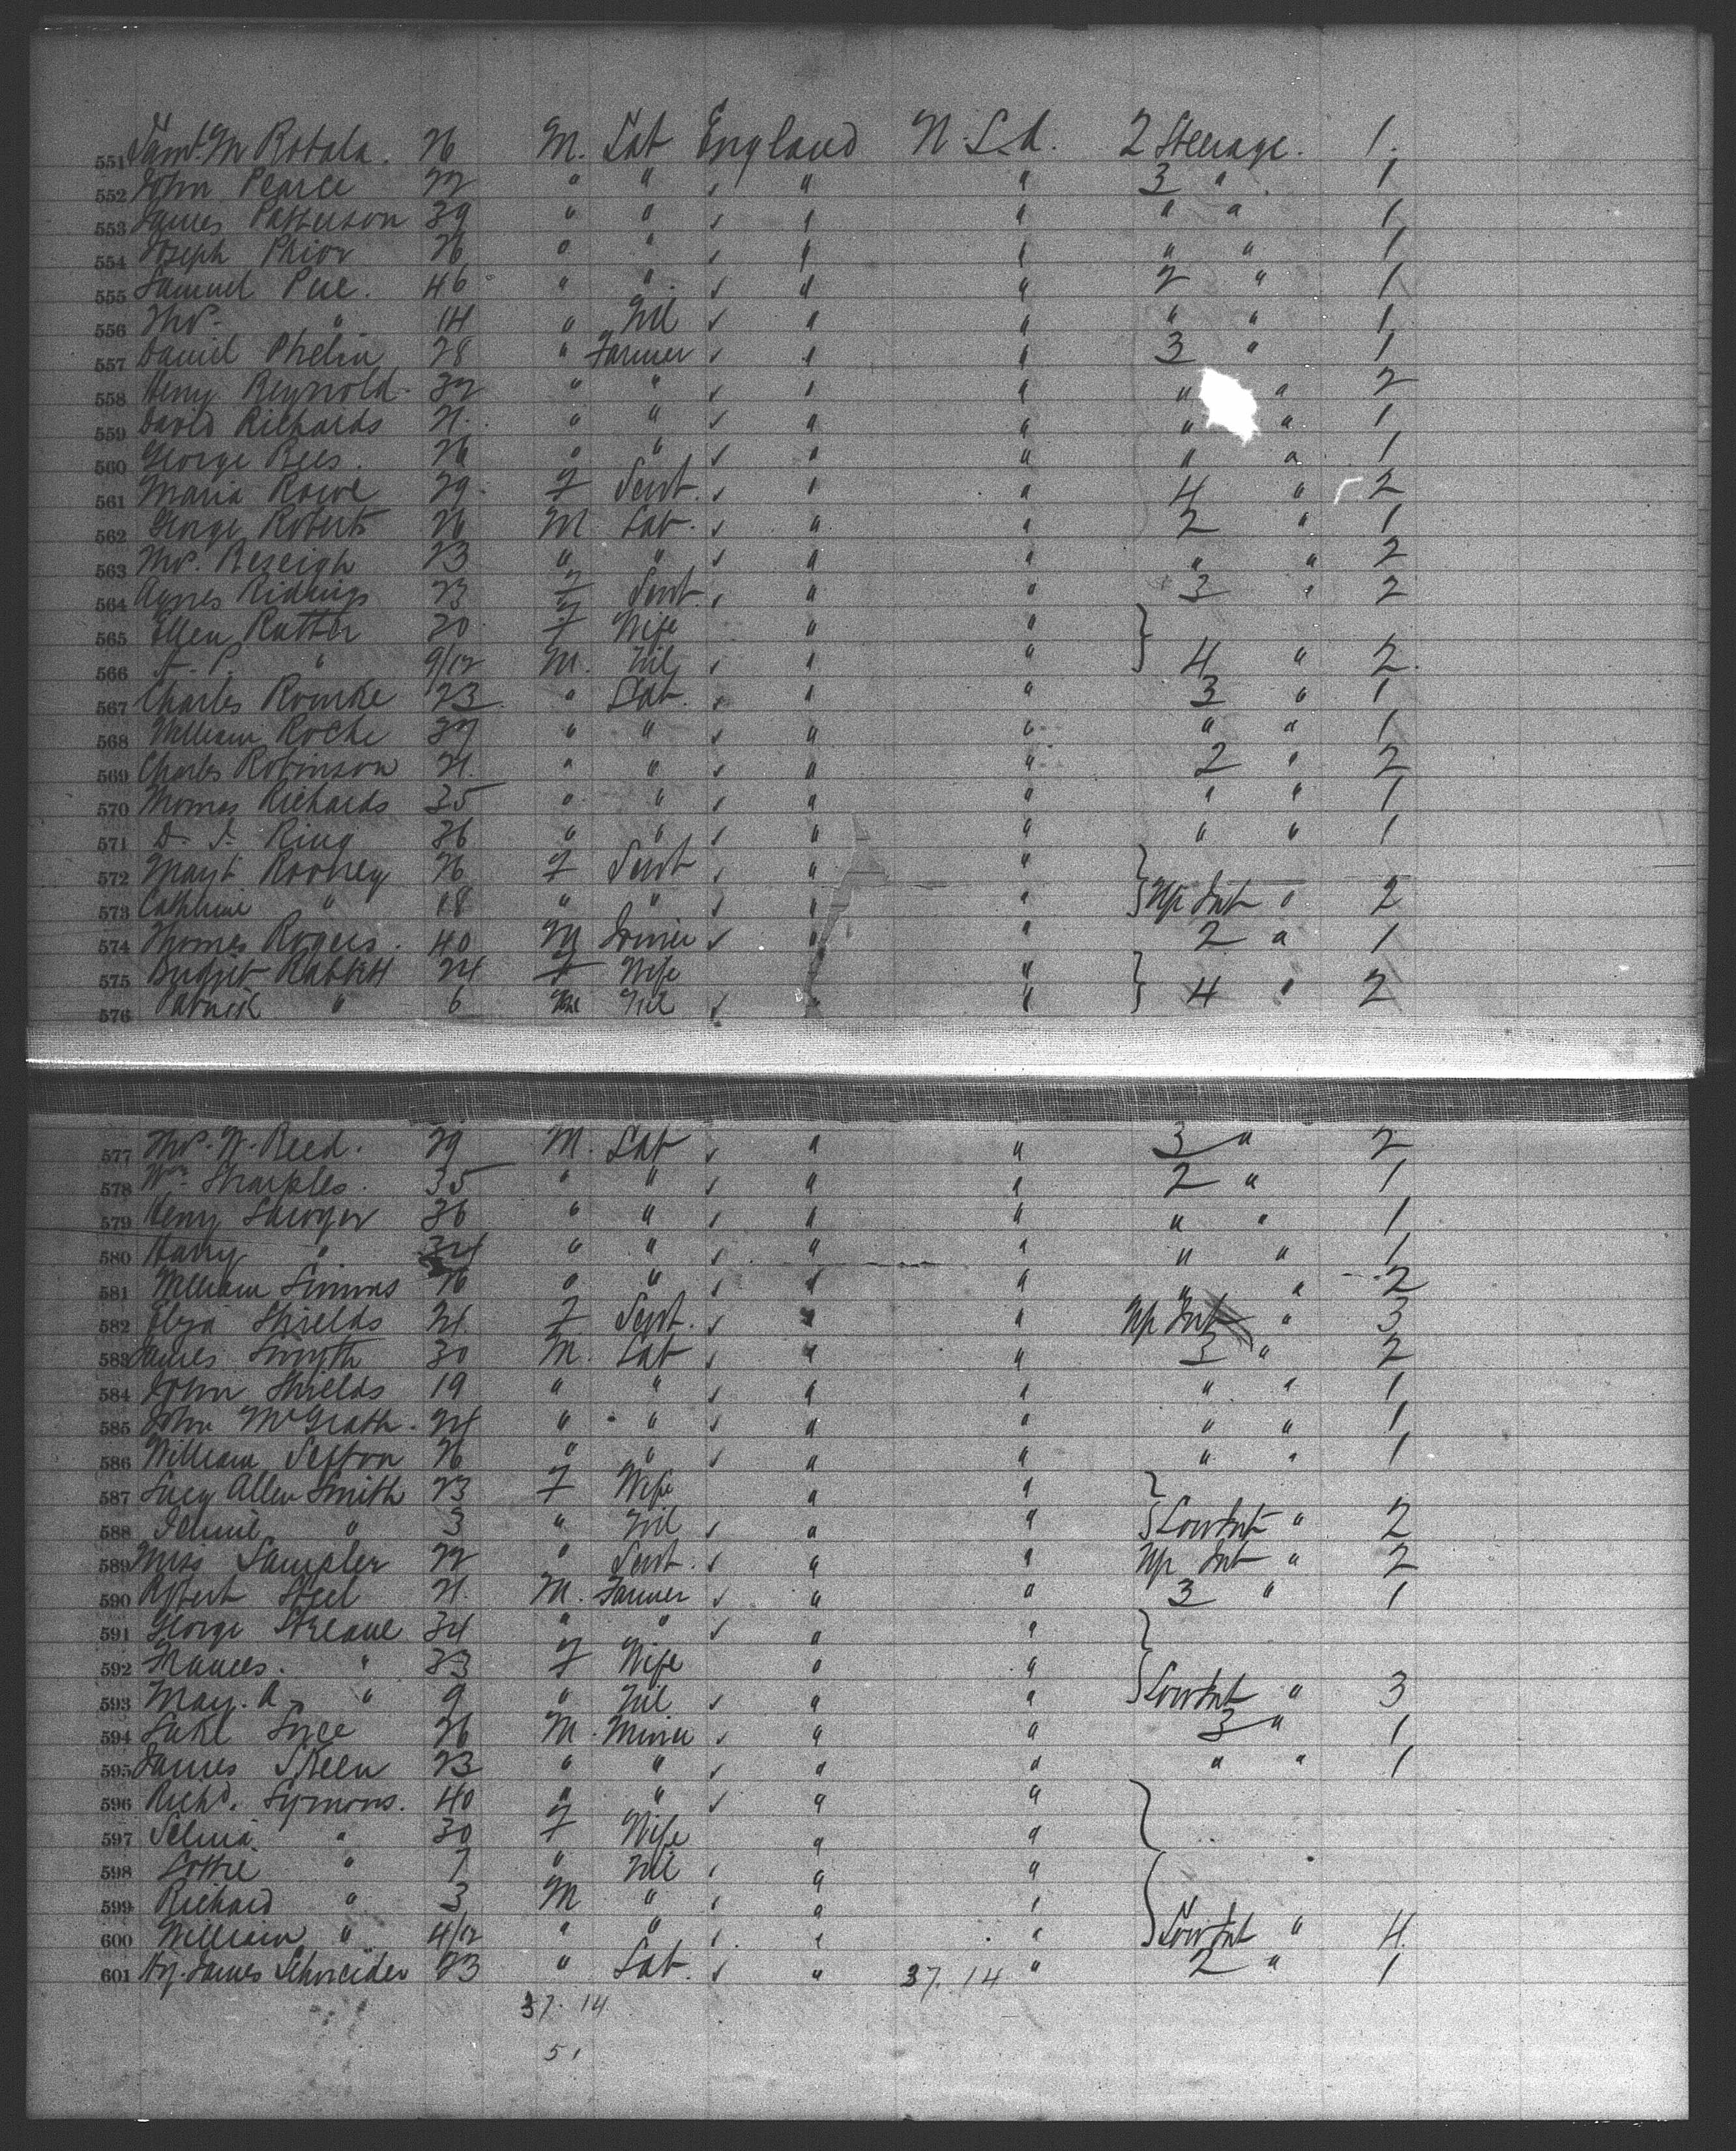 551 Saml. M Rotala. 26 M. Lab England U.S.A. 2 Steerage. 1.
552 John Pearce 22 " " " " 3 " 1
553 James Patterson 39 " " " " " " 1
554 Joseph Prior 26 " " " " " " 1
555 Samuel Pue. 46 " " " " 2 " 1
556 Thos. " 14 " Nil " " " " 1
557 Daniel Phelin 28 " Farmer " " 3 " 1
558 Henry Reynold. 32 " " " " " " 2
559 David Richards 21. " " " " " " 1
560 George Rees. 26 " " " " " " 1
561 Maria Rowe 29. F Servt. " " 4 " 2
562 George Roberts 26 M Lab. " " 2 " 1
563 Thos. Reseigh 23 " " " " " " 2
564 Agnes Ridings 23 F Servt. " " 3 " 2
565 Ellen Rutter 30 F Wife " "
566 A. P. " 9/12 M. Nil " " 4 " 2.
567 Charles Rourke 23 " Lab. " " 3 " 1
568 William Roche 37 " " " " " " 1
569 Charles Robinson 21. " " " " 2 " 2
570 Thomas Richards 35 " " " " " " 1
571 D. J. Ring 36 " " " " " " 1
572 Margt. Rooney 26 F Servt " "
573 Cathrine " 18 " " " " Up Int " 2
574 Thomas Rogers. 40 M Joiner " " 2 " 1
575 Bridget Rabbitt 24 F Wife "
576 Patrick " 6 M Nil " " 4 " 2
577 Thos. W. Reed. 29 M. Lab " " 3 " 2
578 Wm Sharples. 35 " " " " 2 " 1
579 Henry Sawyer 36 " " " " " " 1
580 Harry " 34 " " " " " " 1
581 William Simms 26 " " " " " " 2
582 Eliza Shields 21. F Servt. " " Up Int " 3
583 James Smyth 30 M. Lab " " 3 " 2
584 John Shields 19 " " " " " " 1
585 John McGrath. 24 " " " " " " 1
586 William Sefton 26 " " " " " " 1
587 Lucy Allen Smith 23 F Wife " "
588 Jennie " 3 " Nil " " Low Int " 2
589 Miss Sampler 22 " Servt. " " Up Int " 2
590 Robert Steel 21. M. Farmer " " 3 " 1
591 George Streane 34 " " " "
592 Frances. " 33 F Wife " "
593 May. A " 9 " Nil " " Low Int " 3
594 Luke Suce 26 M. Miner " " 3 " 1
595 James Skeen 23 " " " " " " 1
596 Richd. Symons. 40 " " " "
597 Selina " 30 F Wife " "
598 Lottie " 7 " Nil " "
599 Richard " 3 M " " "
600 William " 4/12 " " " " Low Int " 4
601 Hy. James Schneider 23 " Lab. " 37. 14 " 2 " 1
37. 14
51